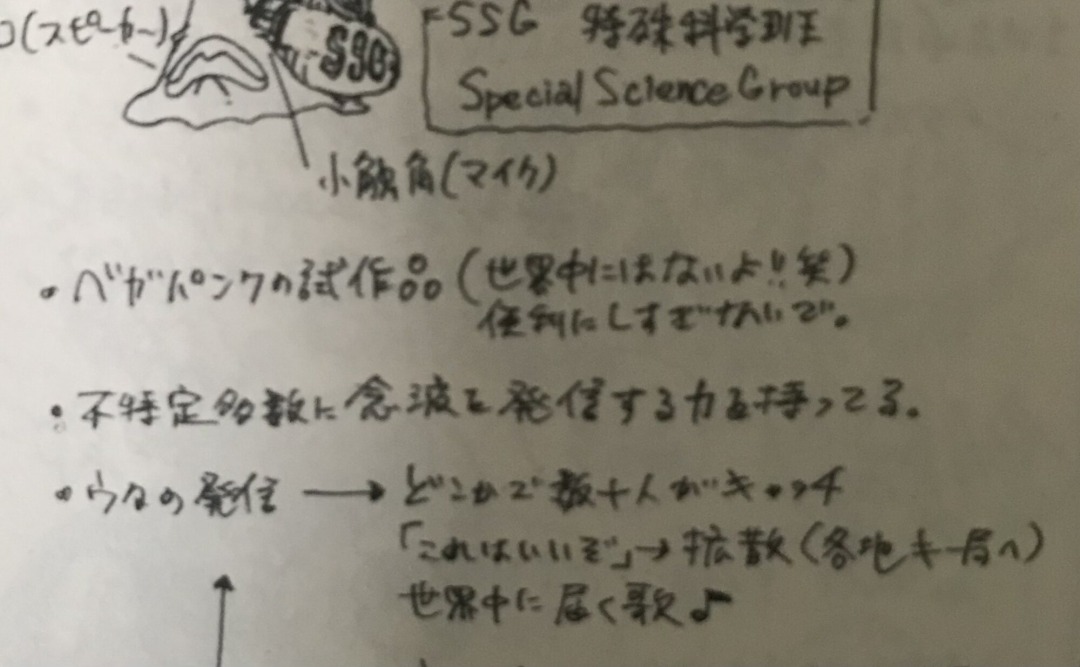 コ(スピーカー)
SSG
SSG 特殊科学班
Special Science Group
小触角(マイク)
・ベガパンクの試作品(世界中にはないよ!!笑)
便利にしすぎないで。
・不特定多数に念波を発信する力を持ってる。
・ウタの発信 → どこかで数十人がキャッチ
「これはいいぞ」→拡散(各地キー局へ)
世界中に届く歌♪